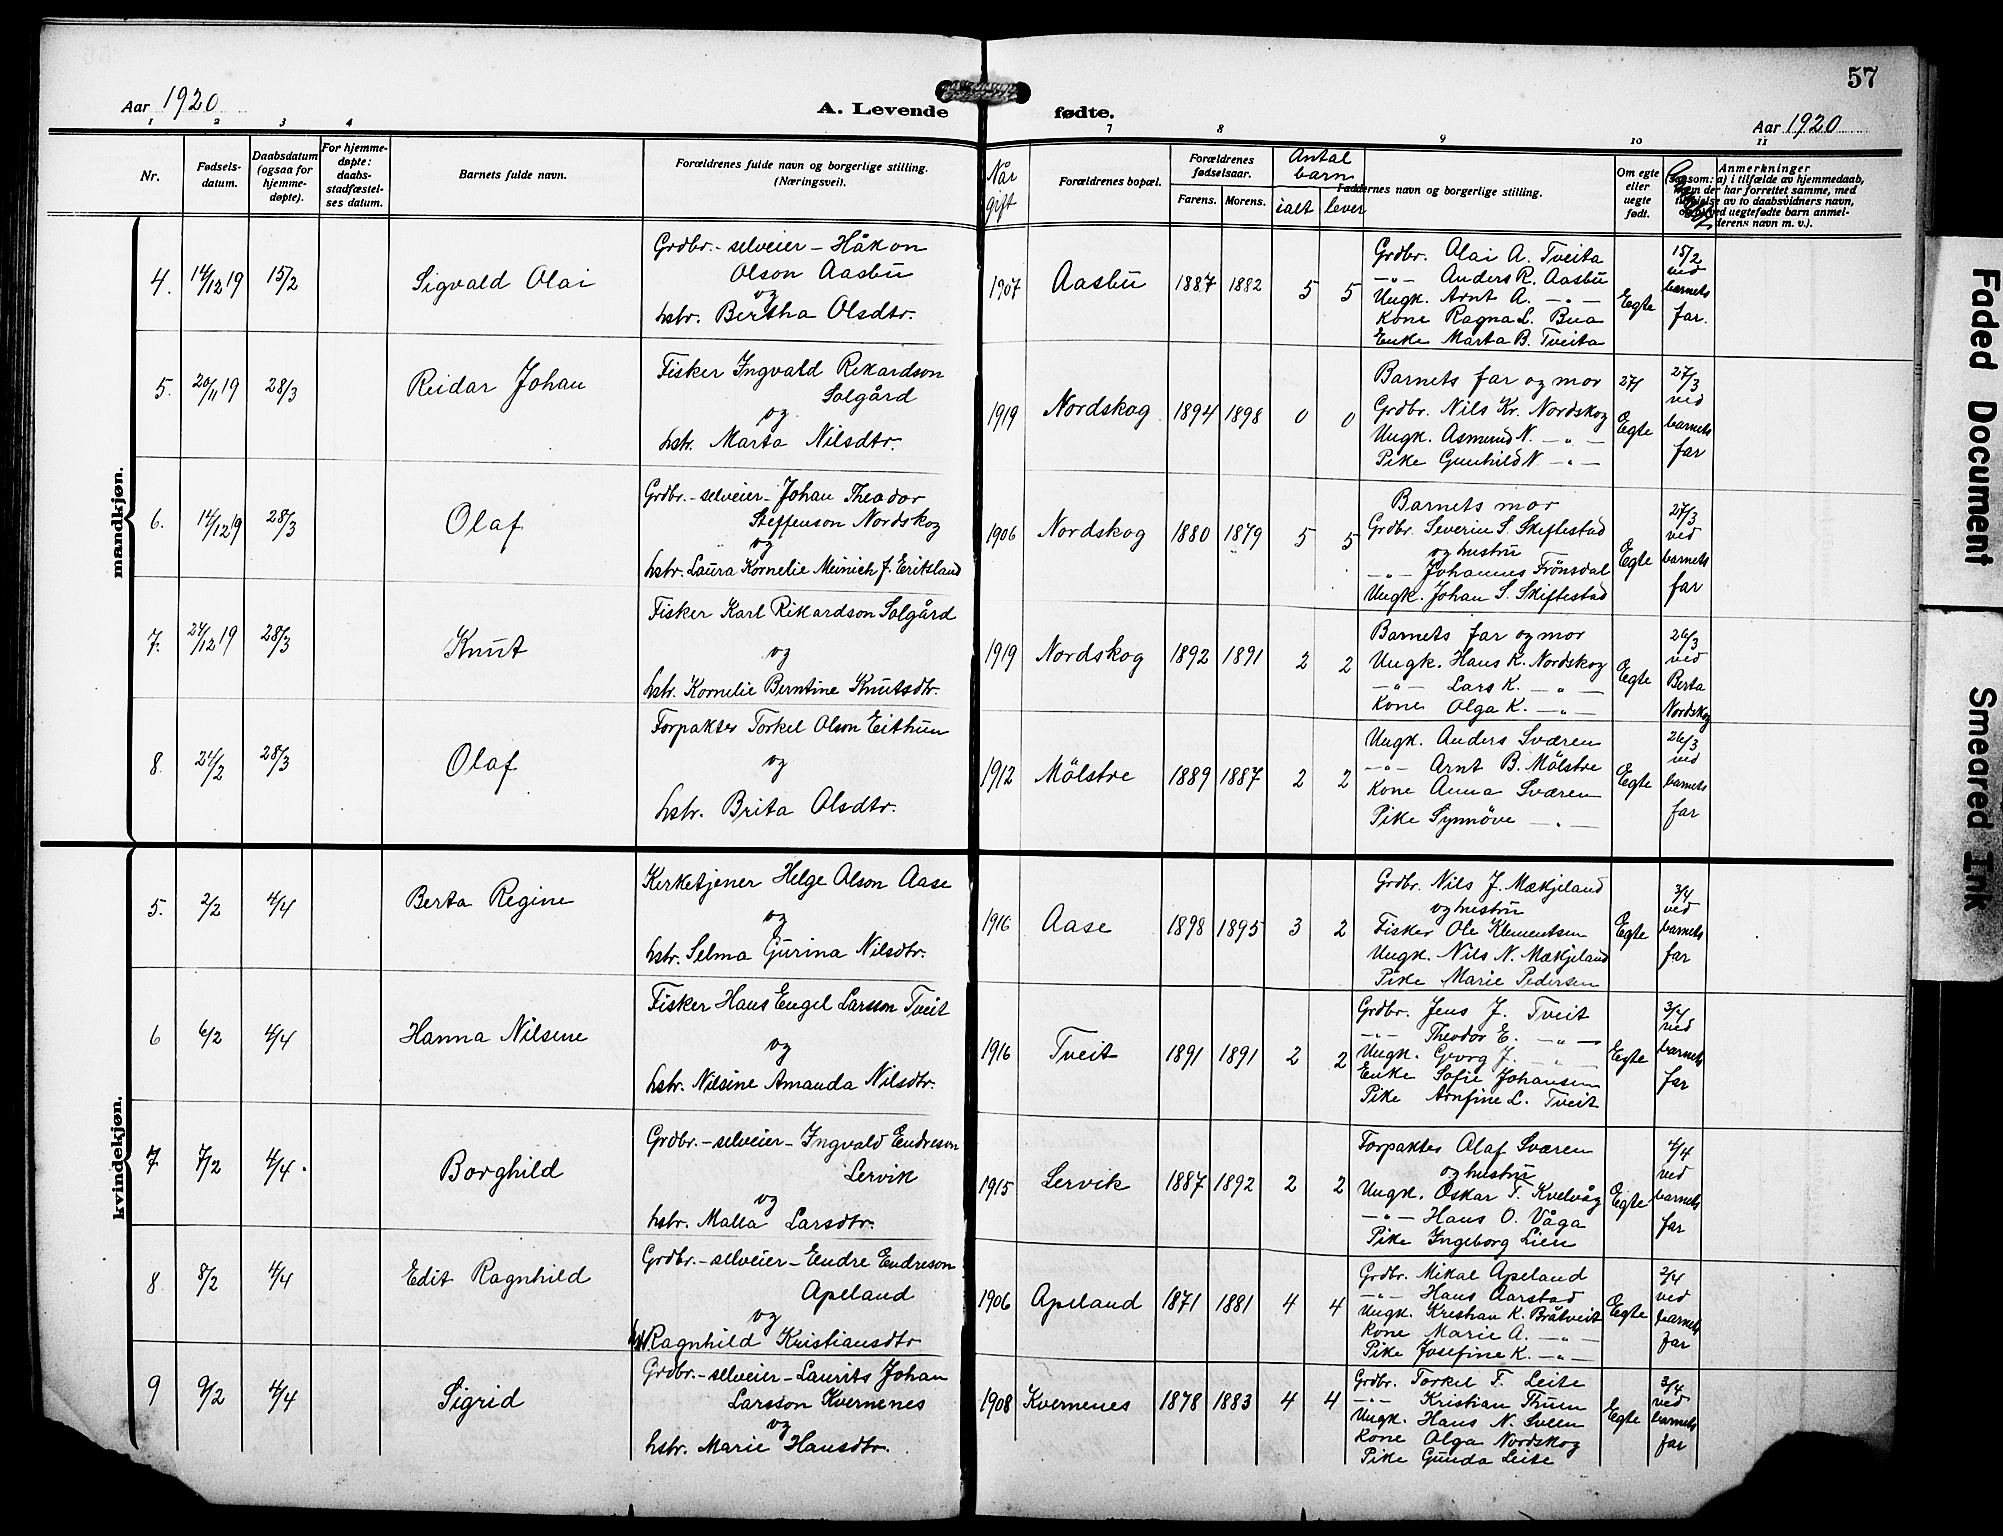 57
Aar 1920
A. Levende fødte.
Aar 1920
1 2 3 4 7 8 9 10 11
Nr.
Fødsels-
datum.
Daabsdatum
(ogsaa for
hjemme-
døpte).
For hjemme-
døpte:
daabs-
stadfæstel-
ses datum.
Barnets fulde navn.
Forældrenes fulde navn og borgerlige stilling.
(Næringsvei).
Når
gift
Forældrenes bopæl.
Forældrenes
fødselsaar.
Farens. Morens.
Antal
barn
ialt lever
Faddernes navn og borgerlige stilling.
Om egte
eller
uegte
født.
Anmerkninger
(saasom: a) i tilfælde av hjemmedaab,
navn der har forrettet samme, med
av to daabsvidners navn,
ved uegtefødte barn anmel-
derens navn m. v.).
mandkjøn.
4. 14/12 19 15/2 Sigvald Olai
Grdbr.-selveier- Håkon
Olson Aasbu
og
hstr. Bertha Olsdtr.
1907 Aasbu 1887 1882 5 5
Grdbr. Olai A. Tveita
-"- Anders R. Aasbu
Ungk. Arnt A. -"-
Kone Ragna L. Bua
Enke Marta B. Tveita
Egte
15/2
ved
barnets
far.
5. 20/11 19 28/3 Reidar Johan
Fisker Ingvald Rikardson
Solgård
og
hstr. Marta Nilsdtr.
1919 Nordskog 1894 1898 0 0
Barnets far og mor
Grdbr. Nils Kr. Nordskog
Ungk. Asmund N. -"-
Pike Gunhild N. -"-
27/
Egte
27/3
ved
barnets
far
6. 14/12 19 28/3 Olaf
Grdbr.-selveier- Johan Theodor
Steffenson Nordskog
og
hstr. Laura Kornelie Meinich f. Eriksland
1906 Nordskog 1880 1879 5 5
Barnets mor
Grdbr. Severin S. Skiftestad
og hustru
-"- Johannes Frönsdal
Ungk. Johan S. Skiftestad
Egte
27/3
ved
barnets
far
7. 24/12 19 28/3 Knut
Fisker Karl Rikardson Solgård
og
hstr. Kornelie Berntine Knutsdtr.
1919 Nordskog 1892 1891 2 2
Barnets far og mor
Ungk. Hans K. Nordskog
-"- Lars K. -"-
Kone Olga K. -"-
Egte
26/3
ved
Berta
Nordskog
8. 24/2 28/3 Olaf
Forpakter Torkel Olson Eithun
og
hstr. Brita Olsdtr.
1912 Mölstre 1889 1887 2 2
Ungk. Anders Sværen
-"- Arnt B. Mölstre
Kone Anna Sværen
Pike Synnöve -"-
Egte
26/3
ved
barnets
far
kvindekjøn.
5. 2/2 4/4 Berta Regine
Kirketjener Helge Olson Aase
og
hstr. Selma Gurina Nilsdtr.
1916 Aase 1898 1895 3 2
Grdbr. Nils J. Mækjeland
og hustru
Fisker Ole Klementsen
Ungk. Nils N. Mækjeland
Pike Marie Pedersen
Egte
3/4
ved
barnets
far
6 6/2 4/4 Hanna Nilsine
Fisker Hans Engel Larsson Tveit
og
hstr. Nilsine Amanda Nilsdtr.
1916 Tveit 1891 1891 2 2
Grdbr. Jens J. Tveit
-"- Theodor E. -"-
Ungk. Georg J. -"-
Enke Sofie Johansen
Pike Arnfine L. Tveit
Egte
3/4
ved
barnets
far
7 7/2 4/4. Borghild
Grdbr.-selveier- Ingvald Endreson
Lervik
og
hstr. Malla Larsdtr.
1915 Lervik 1887 1892 2 2
Forpakter Olaf Sværen
og hustru
Ungk. Oskar T. Kvelvåg
-"- Hans O. Våga
Pike Ingeborg Lien
Egte
4/4
ved
barnets
far
8 8/2 4/4 Edit Ragnhild
Grdbr.-selveier- Endre Endreson
Apeland
og
Ragnhild Kristiansdtr
1906 Apeland 1871 1881 4 4
Grdbr. Mikal Apeland
-"- Hans Aarstad
Ungk. Kristian K. Bråtveit
Kone Marie A. -"-
Pike Josefine K. -"-
Egte
2/4
ved
barnets
far
9 9/2 4/4 Sigrid
Grdbr.-selveier- Laurits Johan
Larsson Kvernenes
og
hstr. Marie Hansdtr.
1908 Kvernenes 1878 1883 4 4
Grdbr. Torkel T. Leite
-"- Kristian Thuen
Ungk. Hans N. Sveen
Kone Olga Nordskog
Pike Gunda Leite
Egte
3/4
ved
barnets
far
Faded Document
Smeared Ink